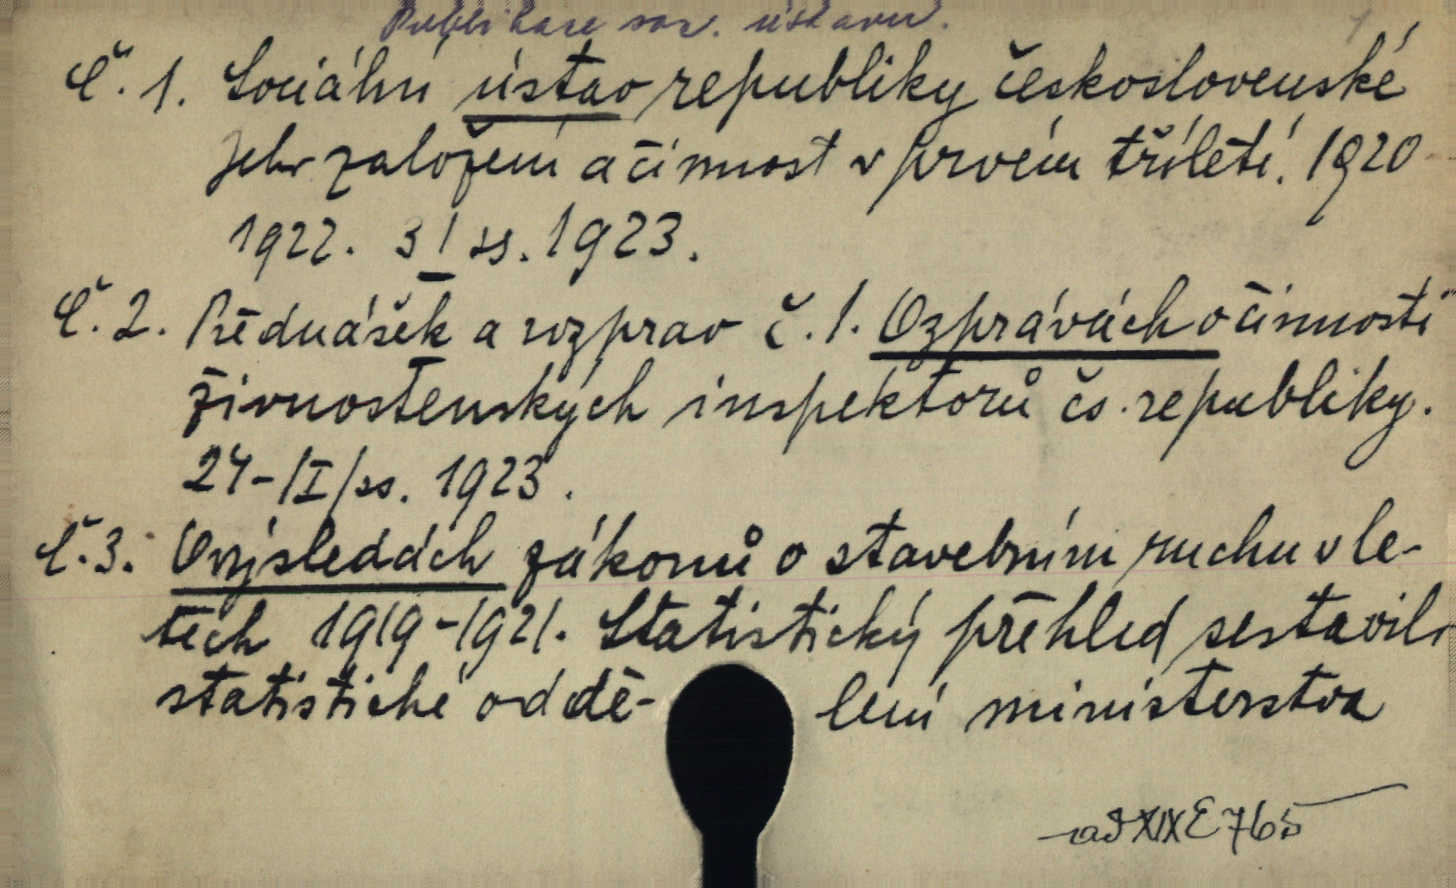 Publikace soc. ústavu.
Č. 1. Sociální ústav republiky československé
Jeho založení a činnost v prvém tříletí. 1920
1922. 31 ss. 1923.
Č. 2. Přednášek a rozprav č. 1. O zprávách o činnosti
živnostenských inspektorů čs. republiky.
24-/I/ss. 1923.
Č. 3. O výsledcích zákonů o stavebním ruchu v le-
tech 1919-1921. Statistický přehled sestavilo
statistické oddě- lení ministerstva
ad XIX E 765